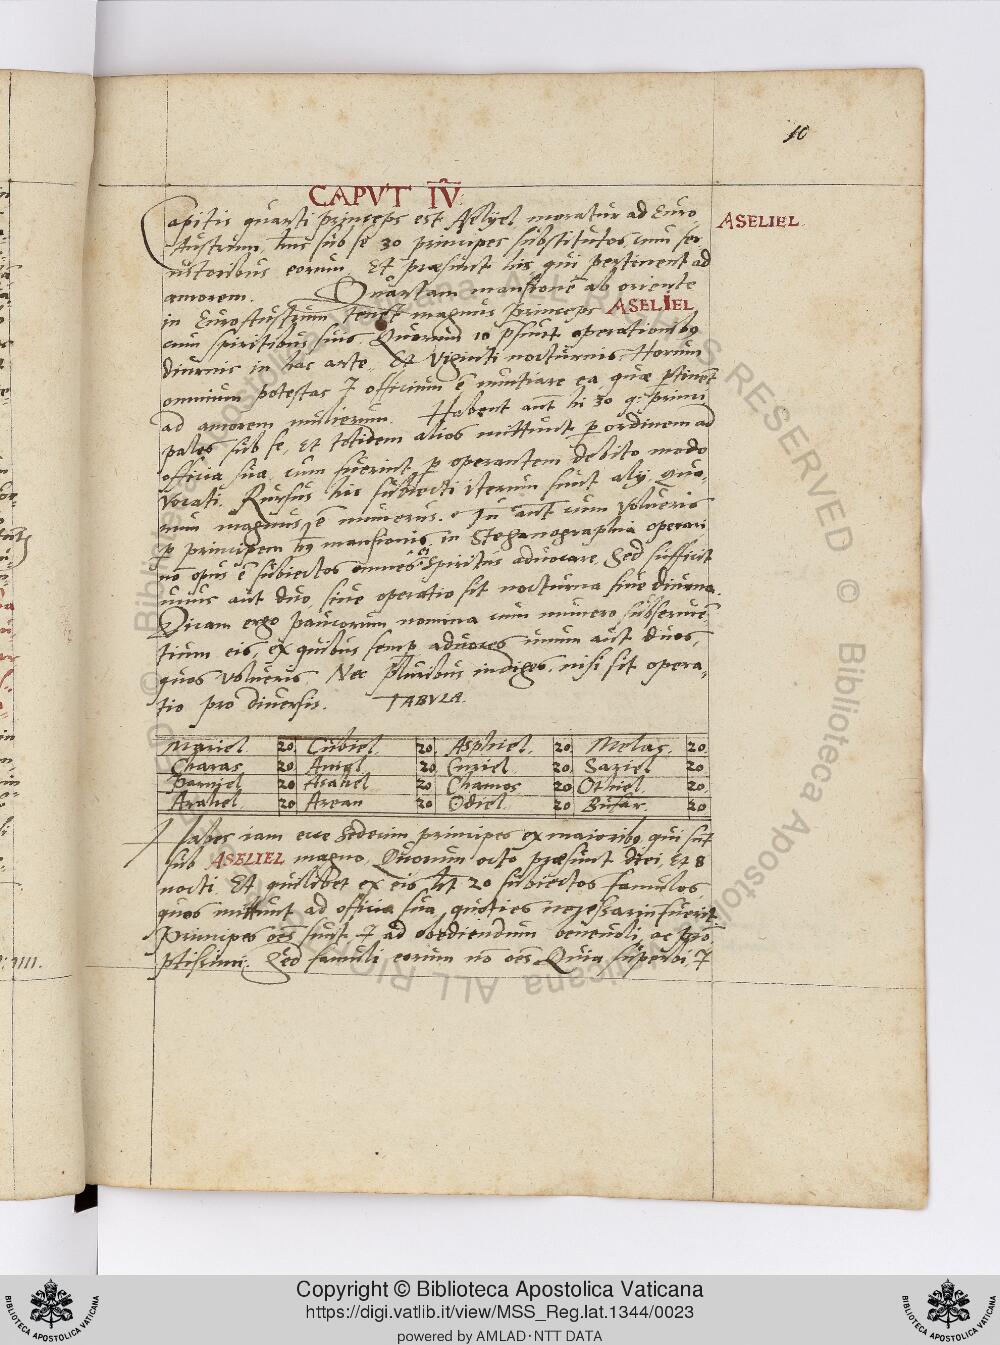 10
CAPVT IV
Capitis quarti princeps est Aselyel moratur ad Euro
ASELIEL
Austrum, hus sub se 30 principes substitutos cum ser
uitoribus eorum, Et præsunt his qui pertinent ad
amorem. Quartam mansionē ab oriente
in Euroaustrum tenet magnus princeps ASELIEL
cum spiritibus suis. Quorum 10 psunt operationibꝯ
diurnis in hac arte. Et Viginti nocturnis. Horum
omnium potestas & officium ē nuntiare ea quæ ptinēt
ad amorem mulierum. Habent aūt hi 30 q. princi
pales sub se, et totidem alios mittunt p ordinem ad
officia sua, cum fuerint p operantem debito modo
vocati. Rursus his subiecti iterum sunt alij quo
rum magnus ē numerus. Tu aūt cum volueris
p principem hꝯ mansionis in Steganographia operari
nō opus ē subiectos omnes eiꝯ Spiritus aduocare, Sed sufficit
unus aut duo, siue operatio sit nocturna siue diurna.
Dicam ergo paucorum nomina cum numero subseruiē
tium eis, ex quibus semp aduoces unum aut duos,
quos volueris. Nec pluribus indiges, nisi sit opera
tio pro diuersis. TABVLA.
Mariel 20 Cubiel. 20 Asphiel. 20 Melas. 20
Charas 20 Aniel 20 Curiel 20 Sariel 20
Parniel 20 Asahel 20 Chamos 20 Othiel. 20
Arahel. 20 Arean 20 Odiel 20 Bufar. 20
Habes iam ecce sedecim principes ex maioribꝯ qui sūt
sub ASELIEL magno. Quorum octo præsunt diei, Et 8
nocti. Et quilibet ex eis hēt 20 subiectos famulos
quos mittunt ad officia sua, quoties necessariū fuerit.
Principes oēs sunt & ad obediendum beneuoli, ac prō
ptissimi. Sed famuli eorum nō oēs. Quia superbi, &
© Biblioteca Apostolica Vaticana ALL RIGHTS RESERVED
Copyright © Biblioteca Apostolica Vaticana
https://digi.vatlib.it/view/MSS_Reg.lat.1344/0023
powered by AMLAD·NTT DATA
BIBLIOTECA APOSTOLICA VATICANA
BIBLIOTECA APOSTOLICA VATICANA